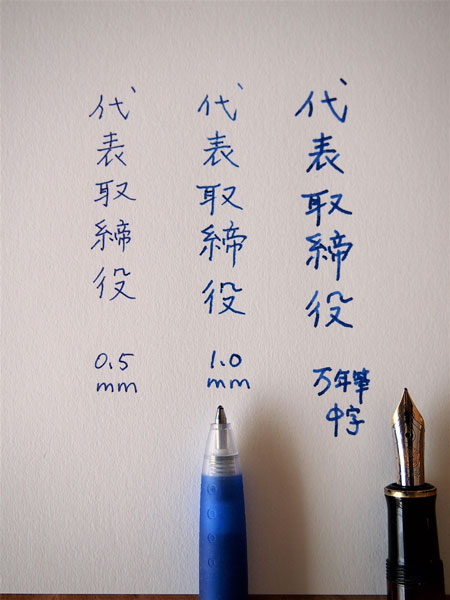 代表取締役
0.5
mm
代表取締役
1.0
mm
代表取締役
万年筆
中字